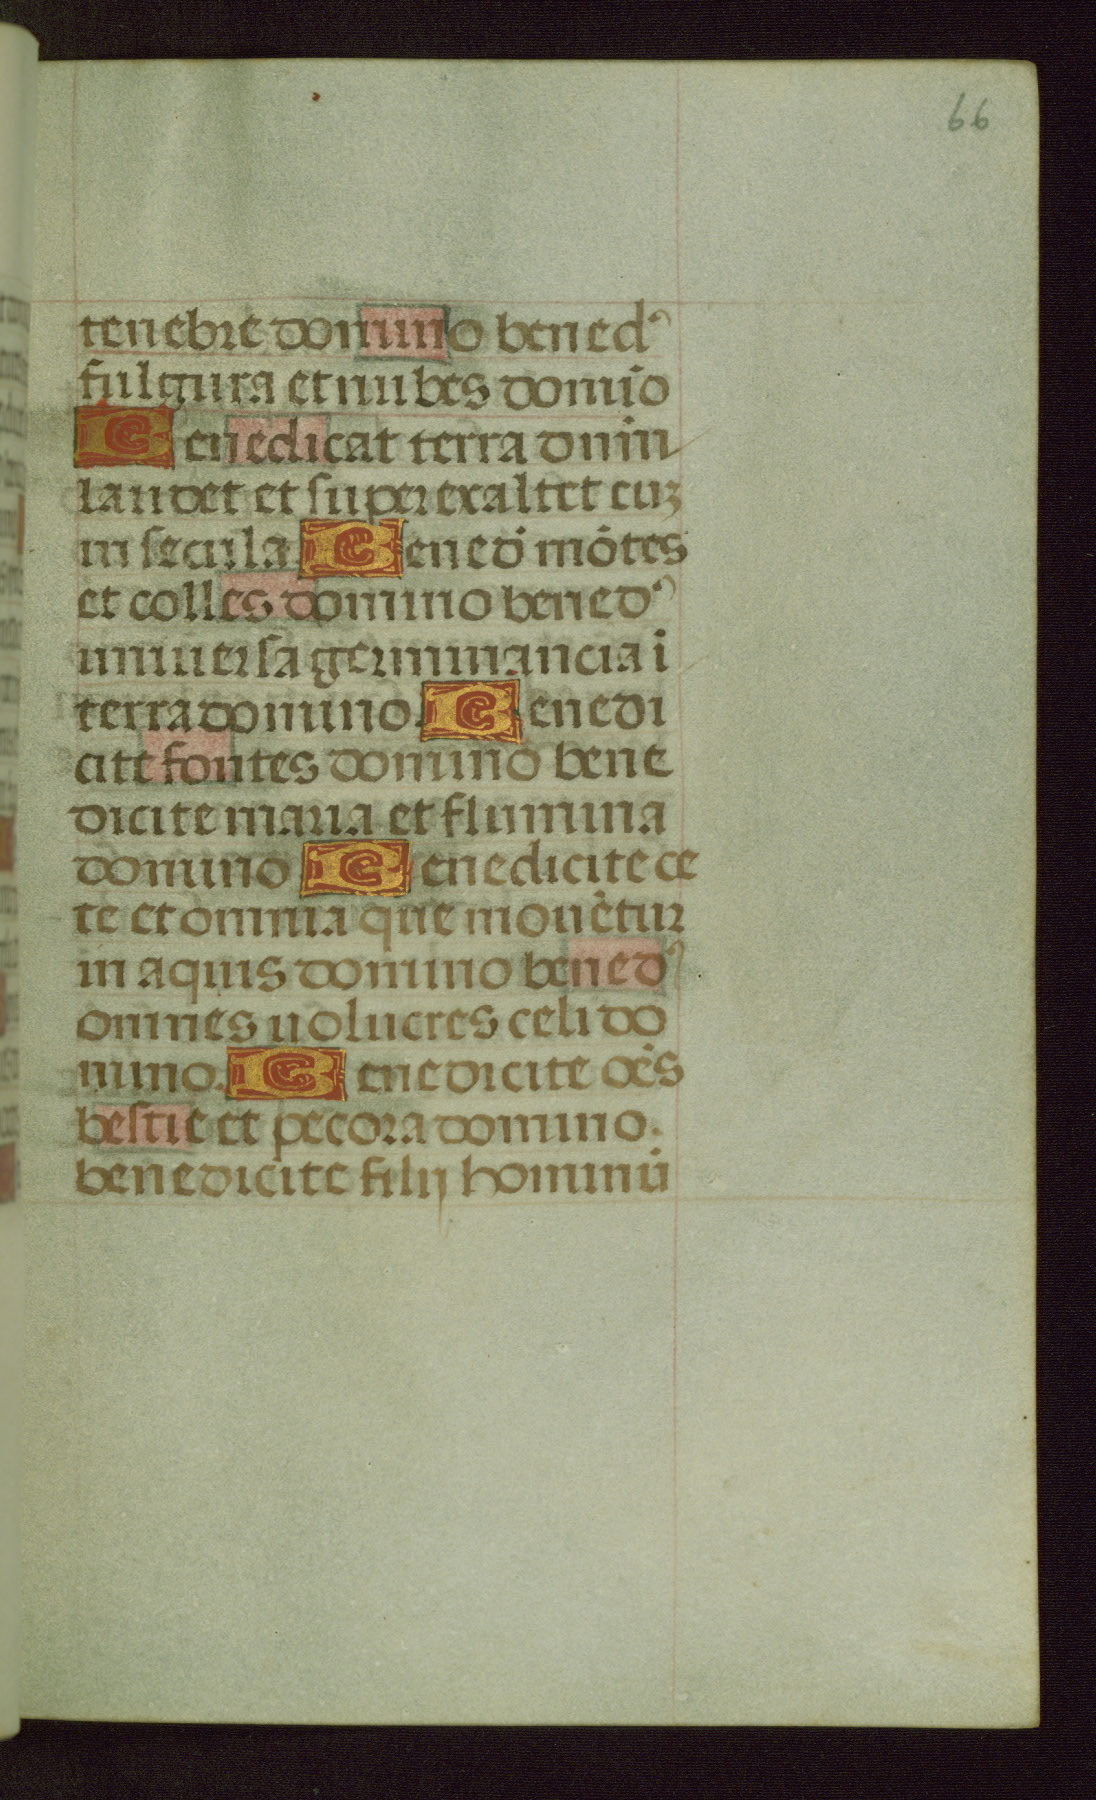 66
tenebre domino bened᾽
fulgura et nubes domīo
Benedicat terra dnm̄
laudet et superexaltet euʒ
in secula Bened̄ mōtes
et colles domino bened᾽
uniuersa germinancia ī
terra domino. Benedi
cite fontes domino bene
dicite maria et flumina
domino Benedicite ce
te et omnia que mouētur
in aquis domino bened᾽
omnes uolucres celi do
mino. Benedicite oēs
bestie et pecora domino.
benedicite filij hominū